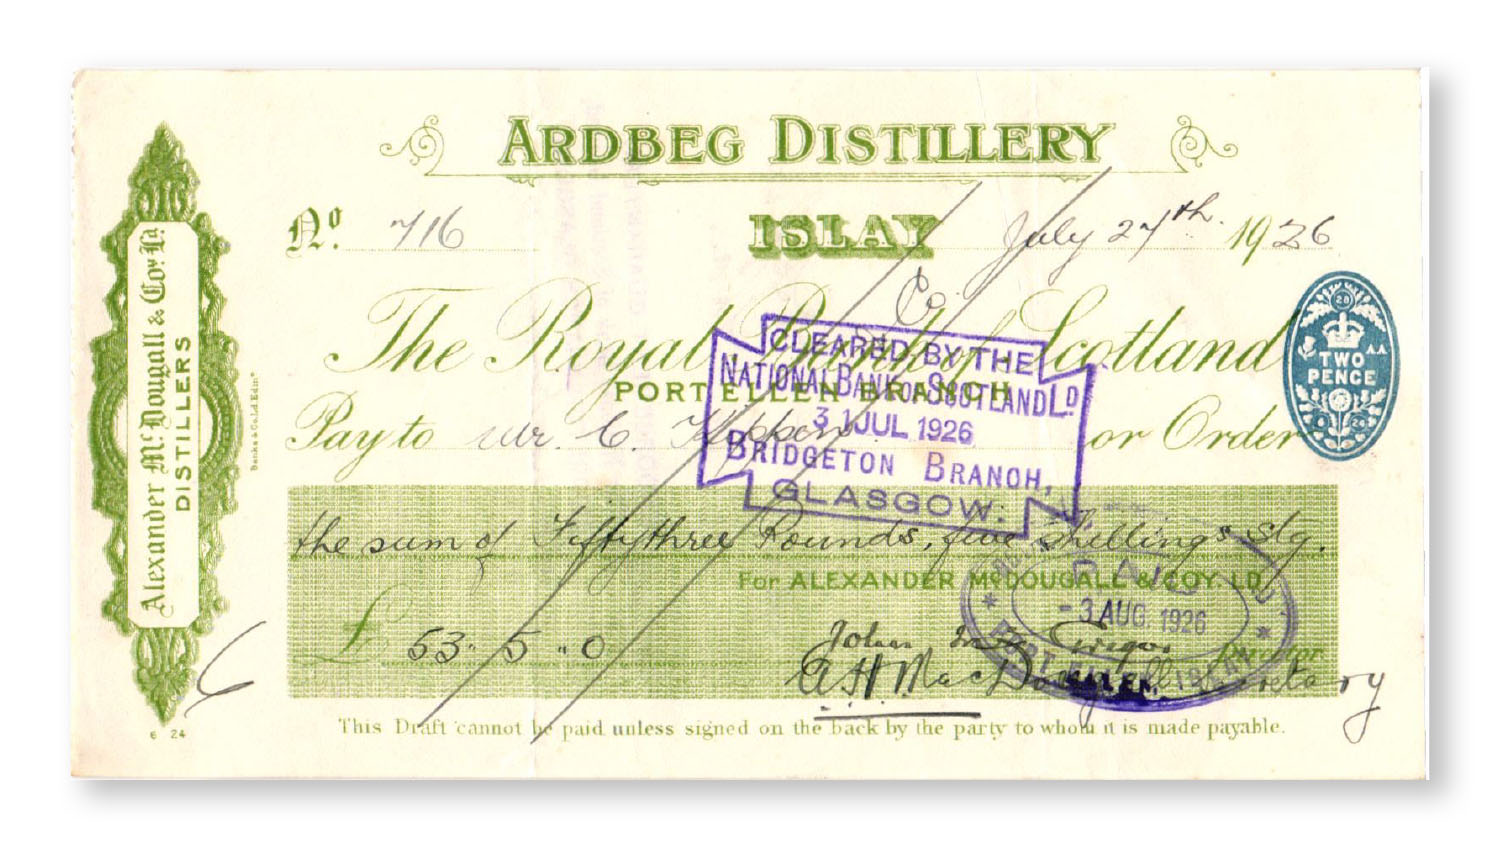 ARDBEG DISTILLERY
Nº. 716 ISLAY July 27th. 1926
Co.
The Royal Bank of Scotland
PORT ELLEN BRANCH
Pay to Mr. C. or Order
the sum of Fiftythree Pounds, five Shillings Stg.
For ALEXANDER McDOUGALL & COY. LD.
£ 53 .. 5 .. 0
John
A H MacDougall Secretary
This Draft cannot be paid unless signed on the back by the party to whom it is made payable.
Alexander McDougall & Coy. Ld.
DISTILLERS
Banks & Co. Ld. Edinr.
6 24
TWO
PENCE
CLEARED BY THE
NATIONAL BANK OF SCOTLAND LD.
31 JUL 1926
BRIDGETON BRANCH,
GLASGOW.
PAID
-3 AUG. 1926
PORT ELLEN, ISLAY